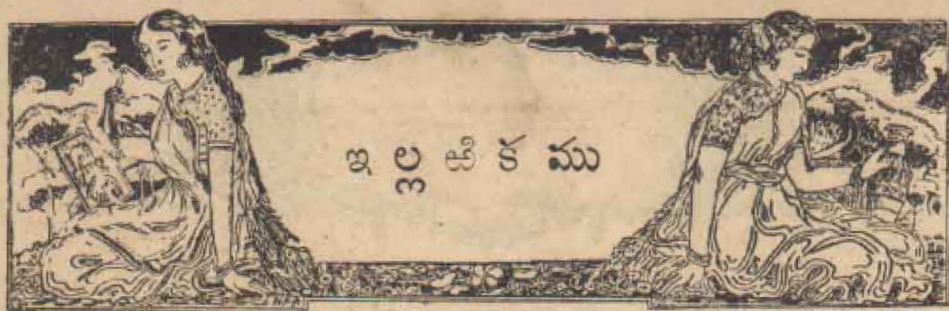 ఇల్లటికము